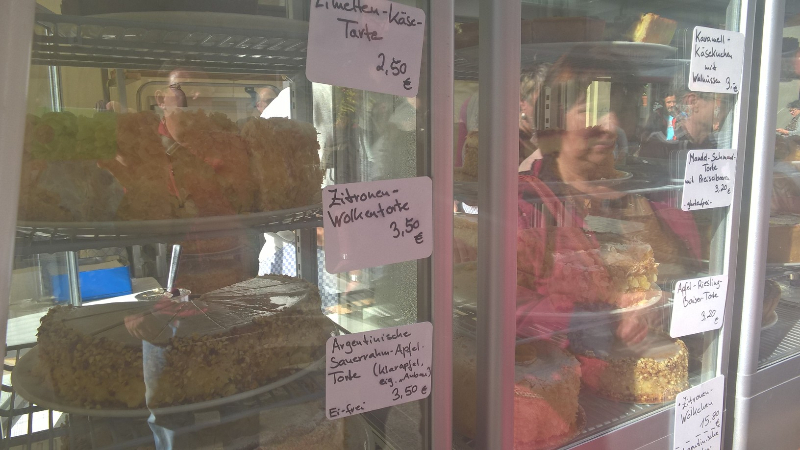 Limetten-Käse-
Tarte
2,50
€
Zitronen-
Wolkentorte
3,50
€
Argentinische
Sauerrahm-Apfel-
Torte (Klarapfel,
eig. Anbau)
3,50
Ei-frei €
Karamell-
Käsekuchen
mit
Walnüssen 3,-
€
Mandel-Schmand-
Torte
mit Preiselbeeren
3,20
-glutenfrei- €
Apfel-Riesling-
Baiser-Torte
3,20
€
Zitronen-
15,80